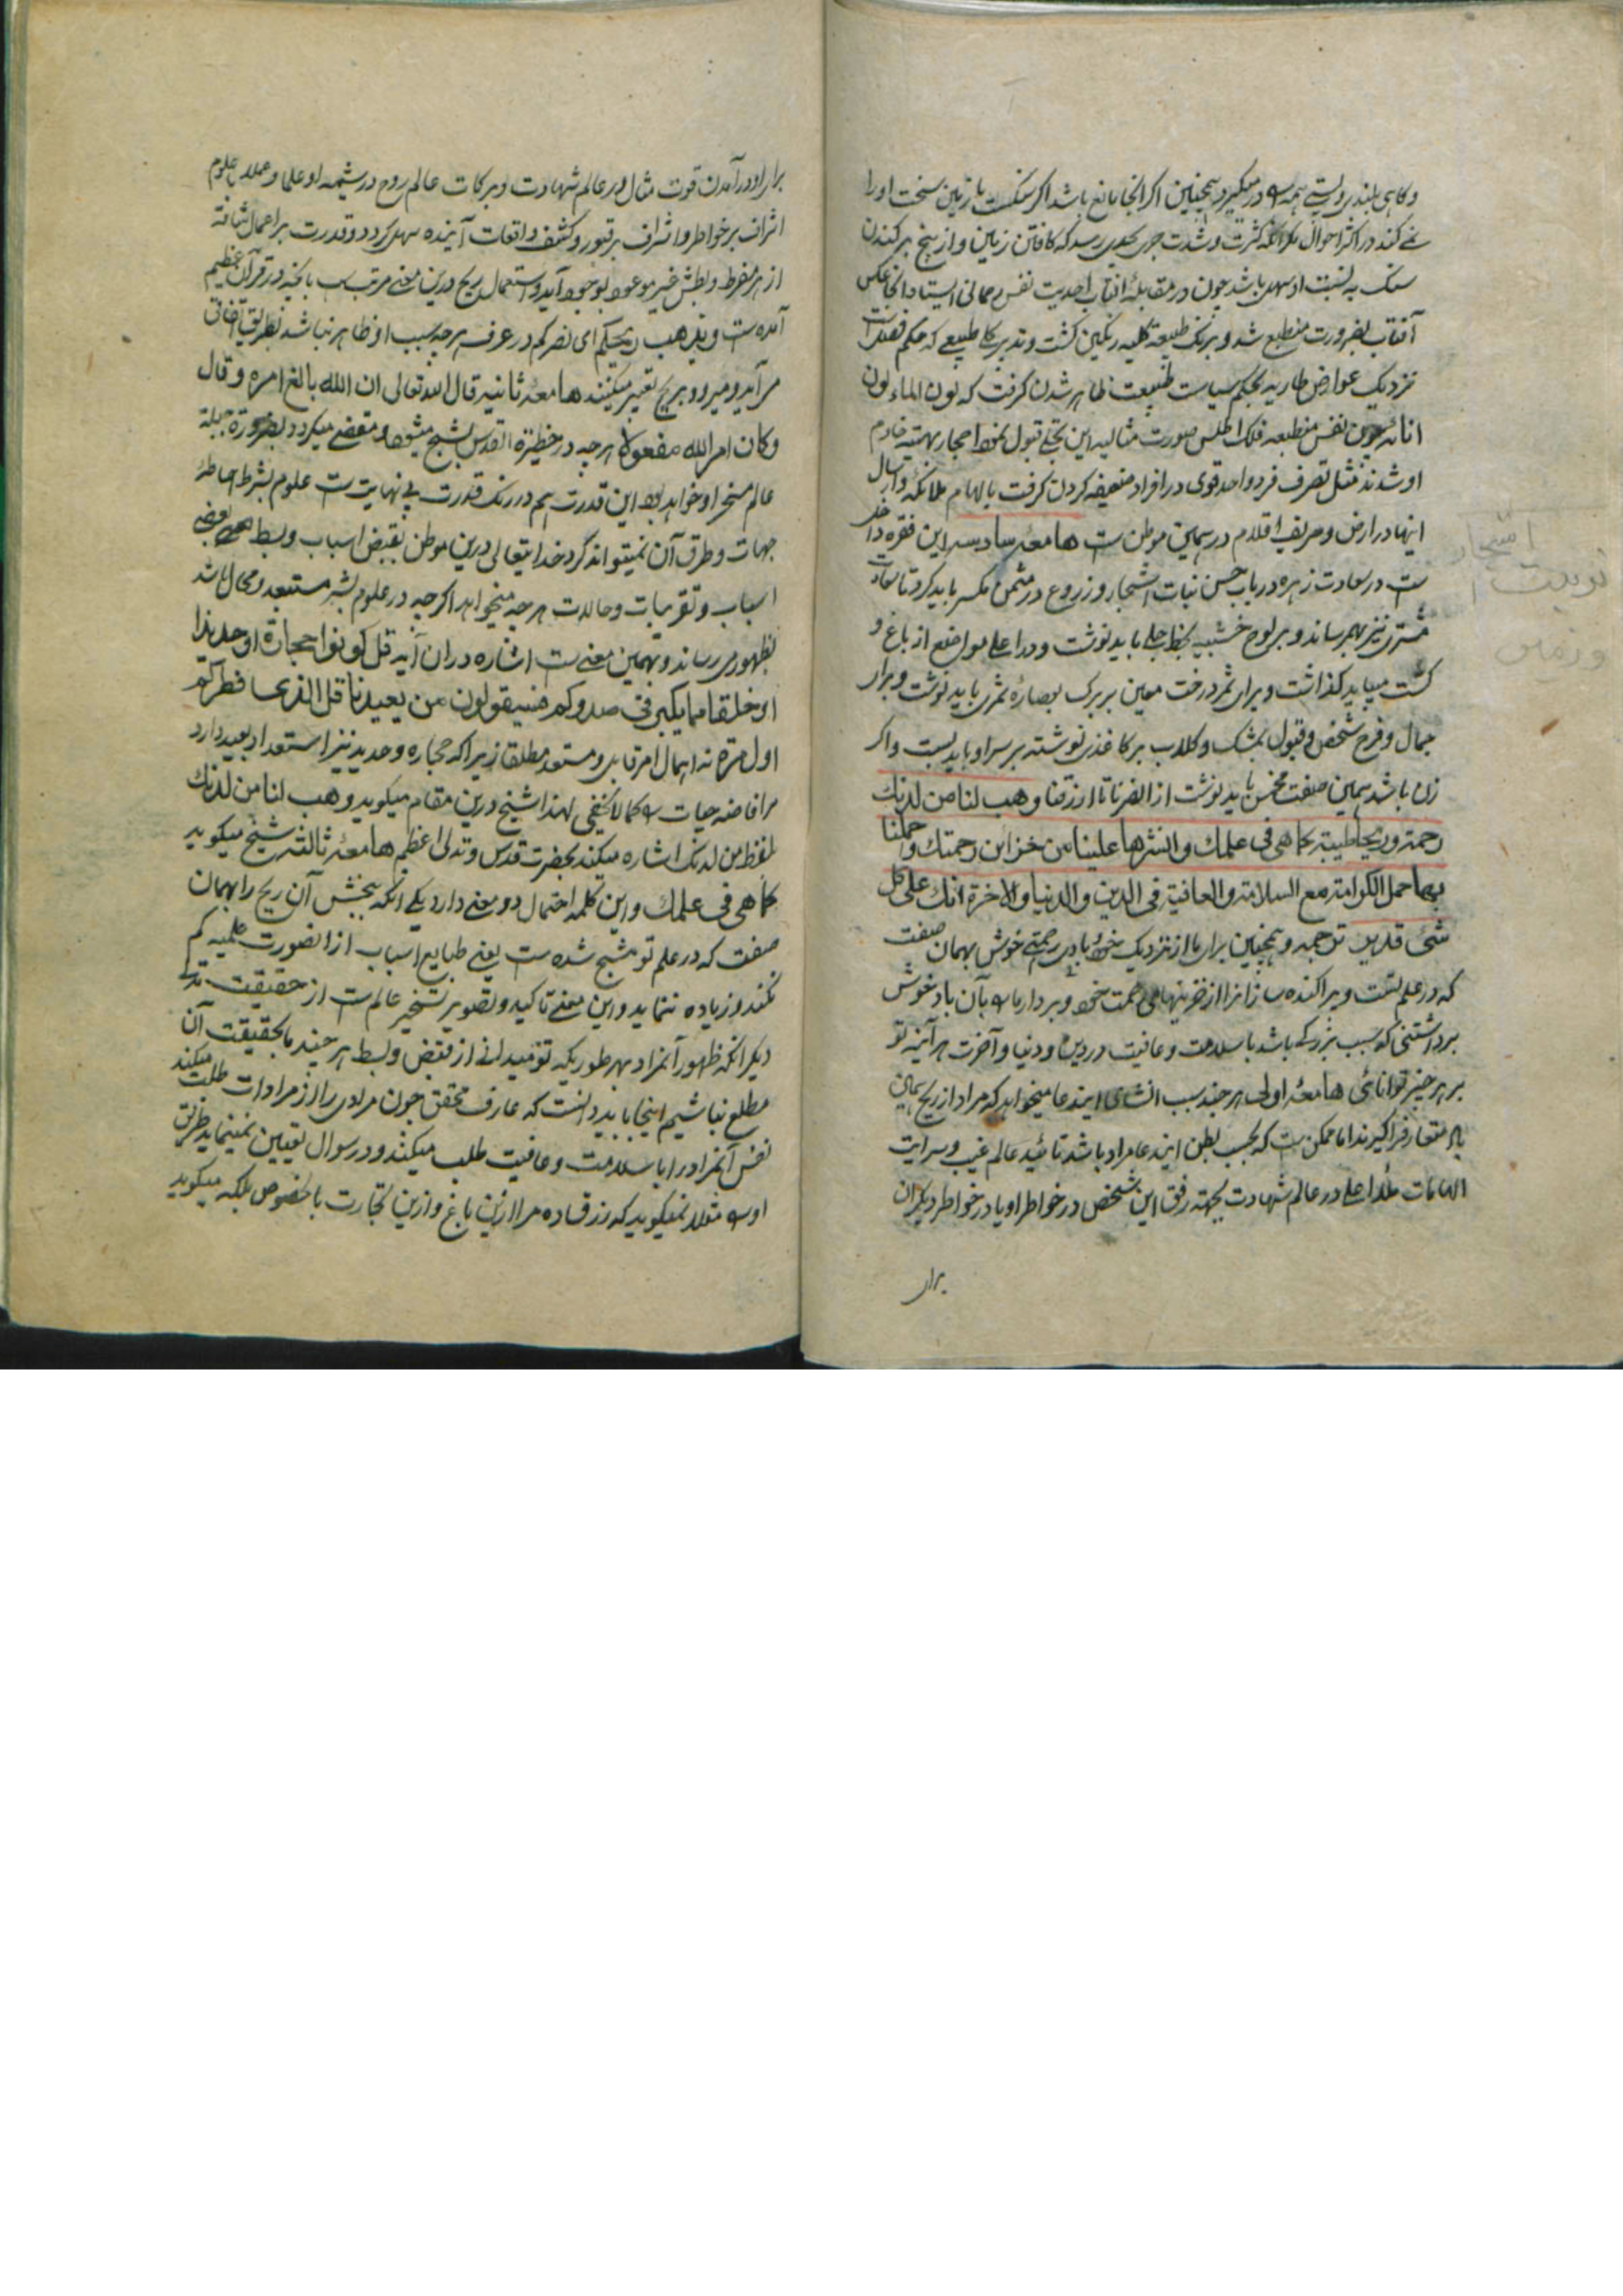 وکاهی بلندی و پستی همه را در میگیرد همچنین اگر آنجا مانع باشد اگر سنگست یا زمین سخت او را
نمی کند در اکثر احوال مگر آنکه کثرت و شدت جری بحدی رسد که کافتن زمین و از بیخ برکندن
سنگ به نسبت او سهل باشد چون در مقابله آفتاب احدیت نفس رحمانی استاد آنجا عکس
آفتاب بضرورت منطبع شد و برنگ طبیعة کلیه رنگین گشت و تدبیر کلی طبیعی که حکم
نزدیک عوارض طاریه بحکم سیاست طبیعت ظاهر شدن گرفت که لون الماء لون
انائه چون نفس منطبعه فلک اطلس صورت مثالیه این تجلی قبول نمود احجار بهتیه خادم
او شدند مثل تصرف فرد واحد قوی در افراد ضعیفه کردن گرفت بالهام ملائکه و ارسال
اینها در ارض و صریف اقلام در همین موطن ست هامعه سادسه این فقره داخل
ست در سعادت زهره در باب حسن نبات اشجار و زروع در مثمن مکسر باید کرد تا سعادت
مشتری نیز بهم رساند و بر لوح خشبیه بخط جلی باید نوشت و در اعلی مواضع از باغ و
کشت میباید گذاشت و برای ثمر درخت معین بر برگ بعصاره ثمرش باید نوشت و برای
جمال و فرح شخص و قبول بمشک و گلاب بر کاغذی نوشته بر سر او باید بست و اگر
زن باشد بهمین صفت مخمس باید نوشت از انصرنا تا ارزقنا وهب لنا من لدنک
رحمة وریحا طیبة کما هی فی علمک وانشرها علینا من خزاین رحمتک واحملنا
بها حمل الکرامة مع السلامة والعافیة فی الدین والدنیا والاخرة انک علی کل
شئ قدیر ترجمه و همچنین برای ما از نزدیک خود بادی رحمتی خوش بهمان صفت
که در علم تست و پراکنده ساز آنرا از خزینهای رحمت خود و بردار ما را بآن باد خوش
برداشتنی که سبب بزرگی باشد با سلامت و عافیت در دین و دنیا و آخرت هر آئینه تو
بر هر چیز توانائی هامعه اولی هر چند سبب انشای این دعا میخواهد که مراد از ریح همان
باد متعارف گیرند اما ممکن ست که بحسب بطن این دعا مراد باشد تائید عالم غیب و سرایت
الهامات ملاء اعلی در عالم شهادت بجهة رفق این شخص در خواطر او یا در خواطر دیگران
برای
اشجار
نوبت
وزمین
برای او در آمدن قوت مثالی در عالم شهادت و برکات عالم روح در شیمه او علما و عملا علوم
اشراف بر خواطر و اشراف بر قبور و کشف واقعات آینده سهل گردد و قدرت بر اعمال شاقه
از هر مفرط و بطش غیر موعود بوجود آید و استعمال ریح درین معنی مرتب ست بآنچه در قرآن عظیم
آمده ست وتذهب ریحکم ای نصرکم در عرف هر چه سبب او ظاهر نباشد بطریق اتفاق
می آید و میرود بریح تعبیر میکنند هامعه ثانیه قال الله تعالی ان الله بالغ امره وقال
وکان امر الله مفعولا هر چه در حظیرة القدس بشبح میشود و مقضی میگردد بضرورة جبله
عالم مسخر او خواهد بود این قدرت هم در رنگ قدرت بی نهایت ست علوم بشر احاطه
جهات و طرق آن نمیتواند کرد خدایتعالی درین موطن بقبض اسباب و بسط بعضی
اسباب و تقریبات و احالات هر چه میخواهد اگرچه در علوم بشر مستبعد و محال باشد
بظهور می رساند و بهمین معنی ست اشاره در آن آیه قل کونوا حجارة او حدیدا
او خلقا مما یکبر فی صدورکم فسیقولون من یعیدنا قل الذی فطرکم
اول مرة نه اهمال امر قابل و مستعد مطلقا زیرا که حجاره و حدید نیز استعداد بعید دارد
مر افاضه حیات را کما لا یخفی لهذا شیخ درین مقام میگوید وهب لنا من لدنک
لفظ من لدنک اشاره میکند بحضرت قدس و تدلی اعظم هامعه ثالثه شیخ میگوید
کما هی فی علمک و این کلمه احتمال دو معنی دارد یکی آنکه ببخش آن ریح را بهمان
صفت که در علم تو مشبح شده ست یعنی طبایع اسباب از آنصورت علمیه کم
نکند و زیاده ننماید و این معنی تاکید و تصویر تسخیر عالم ست از حقیقت
دیگر آنکه ظهور آنمراد بهر طوریکه تو میدانی از قبض و بسط هر چند ما بحقیقت آن
مطلع نباشیم اینجا باید دانست که عارف محقق چون مرادی را از مرادات طلب میکند
نفس آنمراد را با سلامت و عافیت طلب میکند و در سوال تعیین نمینماید طریق
او را مثلا نمیگوید که رزق ده مرا ازین باغ و ازین تجارت بالخصوص بلکه میگوید